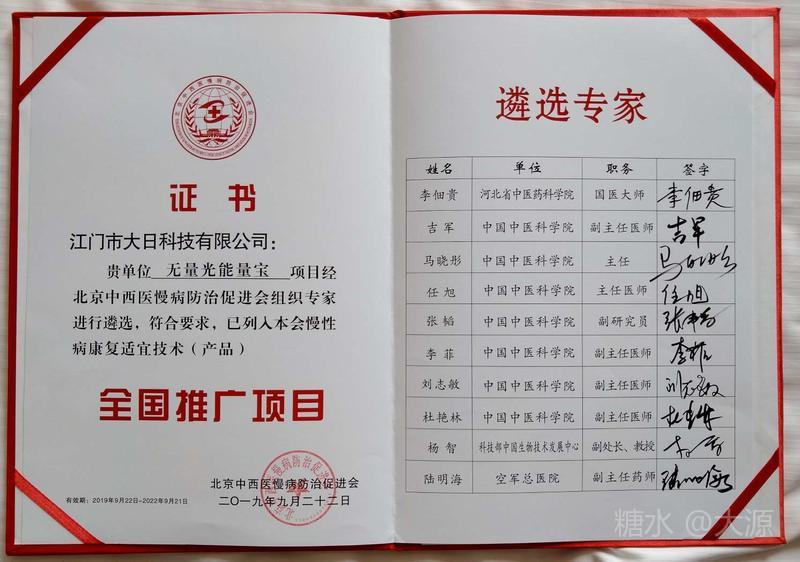 证书
江门市大日科技有限公司：
贵单位 无量光能量宝 项目经
北京中西医慢病防治促进会组织专家
进行遴选，符合要求，已列入本会慢性
病康复适宜技术（产品）
全国推广项目
北京中西医慢病防治促进会
二〇一九年九月二十二日
有效期：2019年9月22日-2022年9月21日
遴选专家
姓名 单位 职务 签字
李佃贵 河北省中医药科学院 国医大师 李佃贵
吉军 中国中医科学院 副主任医师 吉军
马晓彤 中国中医科学院 主任
任旭 中国中医科学院 主任医师 任旭
张韬 中国中医科学院 副研究员
李菲 中国中医科学院 副主任医师
刘志敏 中国中医科学院 副主任医师
杜艳林 中国中医科学院 副主任医师
杨智 科技部中国生物技术发展中心 副处长、教授
陆明海 空军总医院 副主任药师
糖水 @大源